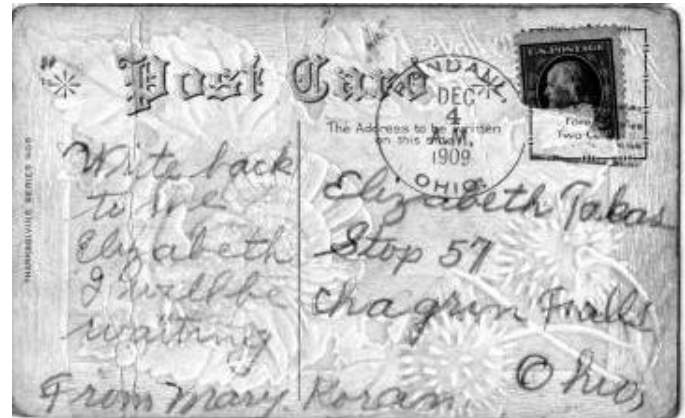 Post Card
U.S. POSTAGE
DEC
4
1909
OHIO
The Address to be written
on this
Two
THANKSGIVING SERIES
Write back
to me
Elizabeth
I will be
waiting
From Mary Koran
Elizabeth Takas
Stop 57
Chagrin Falls
Ohio